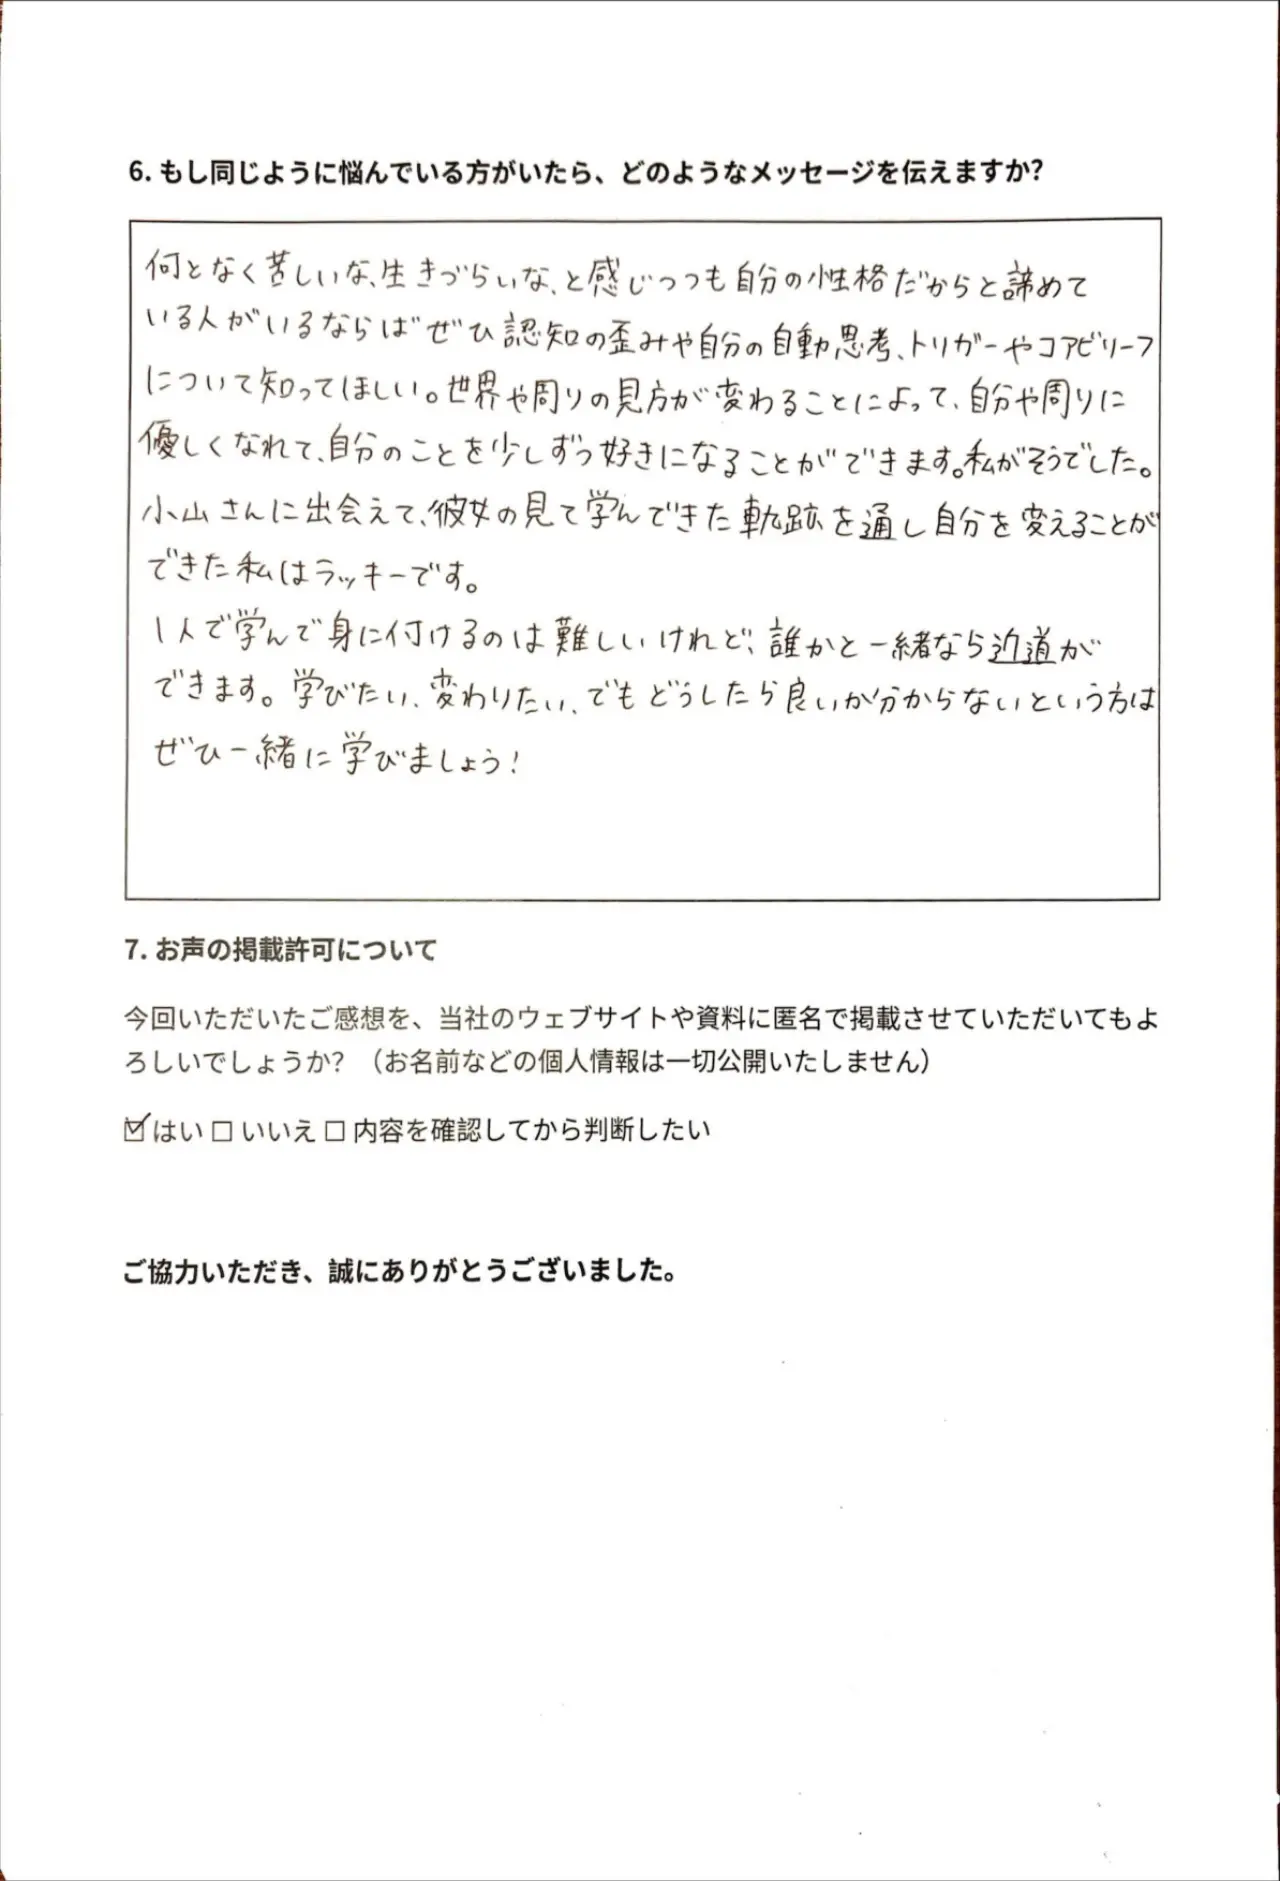 6. もし同じように悩んでいる方がいたら、どのようなメッセージを伝えますか?
何となく苦しいな、生きづらいな、と感じつつも自分の性格だからと諦めて
いる人がいるならばぜひ認知の歪みや自分の自動思考、トリガーやコアビリーフ
について知ってほしい。世界や周りの見方が変わることによって、自分や周りに
優しくなれて、自分のことを少しずつ好きになることができます。私がそうでした。
小山さんに出会えて、彼女の見て学んできた軌跡を通し自分を変えることが
できた私はラッキーです。
1人で学んで身に付けるのは難しいけれど、誰かと一緒なら近道が
できます。学びたい、変わりたい、でもどうしたら良いか分からないという方は
ぜひ一緒に学びましょう!
7. お声の掲載許可について
今回いただいたご感想を、当社のウェブサイトや資料に匿名で掲載させていただいてもよ
ろしいでしょうか? （お名前などの個人情報は一切公開いたしません）
☑ はい ☐ いいえ ☐ 内容を確認してから判断したい
ご協力いただき、誠にありがとうございました。